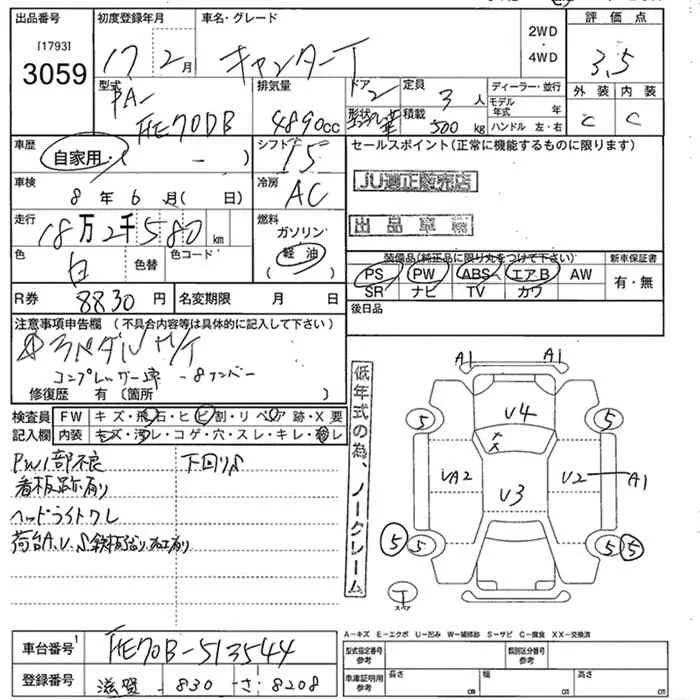 出品番号 初度登録年月 車名・グレード 評価点
[1793]
3059 17年2月 キャンターT 2WD・4WD 3.5
型式 PA-FE70DB 排気量 4890cc ドア 2 定員 3人 ディーラー・並行 外装 内装
形状 積載 500kg モデル年式 年 C C
ハンドル 左・右
車歴 自家用・( ー ) シフト I5 セールスポイント(正常に機能するものに限ります)
車検 8年6月( 日) 冷房 AC JU適正販売店
走行 18万2千580km 燃料 ガソリン 軽油 ( ) 出品車輌
色 白 色替 色コード 装備品(純正品に限り丸をつけて下さい) 新車保証書
PS PW ABS エアB AW 有・無
R券 8830円 名変期限 月 日 SR ナビ TV カワ
後日品
注意事項申告欄(不具合内容等は具体的に記入して下さい)
コンプレッサー車 -8ナンバー
修復歴 有(箇所 )
検査員記入欄 FW キズ・飛石・ヒビ割・リペア跡・X要
内装 キズ・汚レ・コゲ・穴・スレ・キレ・劣レ
PW1部不良 下回りS
看板跡有り
ヘッドライトワレ
荷台A.U.S鉄板張り加工有り
低年式の為、ノークレーム
A1 A1
5 U4 5
X
UA2 U3 U2 A1
5 5 5
T
スペア
車台番号 FE70B-513544
登録番号 滋賀 830 さ 8208
A-キズ E-エクボ U-凹み W-補修跡 S-サビ C-腐食 XX-交換済
型式指定番号 参考 類別区分番号 参考
車庫証明用 参考 長さ cm 幅 cm 高さ cm